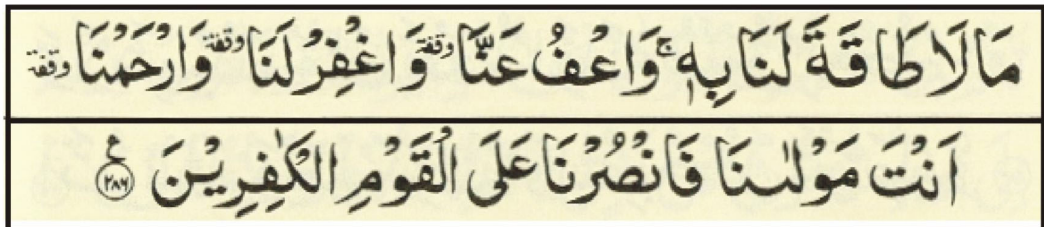 مَا لَا طَاقَةَ لَنَا بِهٖ ۚ وَاعْفُ عَنَّا وقفة وَاغْفِرْ لَنَا وقفة وَارْحَمْنَا وقفة
اَنْتَ مَوْلٰىنَا فَانْصُرْنَا عَلَى الْقَوْمِ الْكٰفِرِيْنَ ﴿۲۸۶﴾ ع